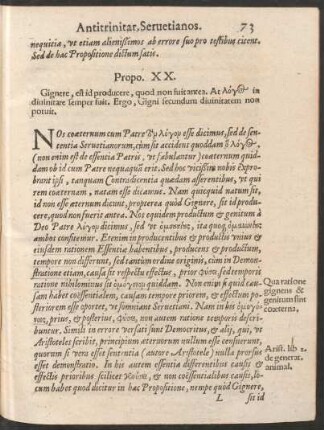 Antitrinitar. Seruetianos. 73
nequitia, vt etiam alienissimos ab errore suo pro testibus citent.
Sed de hac Propositione dictum satis.
Propo. XX.
Gignere, est id producere, quod non fuit antea. At λόγος in
diuinitate semper fuit. Ergo, Gigni secundum diuinitatem non
potuit.
NOs coæternum cum Patre λόγον esse dicimus, sed de sen-
tentia Seruetianorum, cùm sit accidens quoddam ὁ λόγος,
(non enim est de essentia Patris, vt fabulantur) coæternum quid-
dam ob id cum Patre nequaquã erit. Sed hoc vicissim nobis expro-
brant ipsi, tanquam Contradicentia quædam asserentibus, vt qui
rem coæternam, natam esse dicamus. Nam quicquid natum sit,
id non esse æternum dicunt, propterea quòd Gignere, sit id produ-
cere, quod non fuerit antea. Nos equidem productum & genitum à
Deo Patre λόγον dicimus, sed vt ita quoq;
ambos confitemur. Etenim in producentibus & productis vnius &
eiusdem ratione Essentia habentibus, producens & productum,
tempore non differunt, sed tantùm ordine originis, cùm in Demon-
stratione etiam, causa sit respectu effectus, prior φύσει, sed temporis
ratione nihilominus sit quoddam. Non enim si quid cau-
sam habet coëssentialem, causam tempore priorem, & effectum po-
steriorem esse oportet, vt somniant Seruetiani. Nam in his
prius, & posterius, φύσει, non autem ratione temporis descri-
buntur. Simili in errore versati sunt Democritus, & alij, qui, vt
Aristoteles scribit, principium æternorum nullum esse censuerunt,
quorum si vera esset sententia (autore Aristotele) nulla prorsus
esset demonstratio. In his autem essentia differentibus causis &
effectis prioribus scilicet & non coëssentialibus causis, lo-
cum habet quod dicitur in hac Propositione, nempe quòd Gignere,
L sit id
Qua ratione
gignens &
genitum sint
coæterna.
Arist. lib 2.
de generat.
animal.